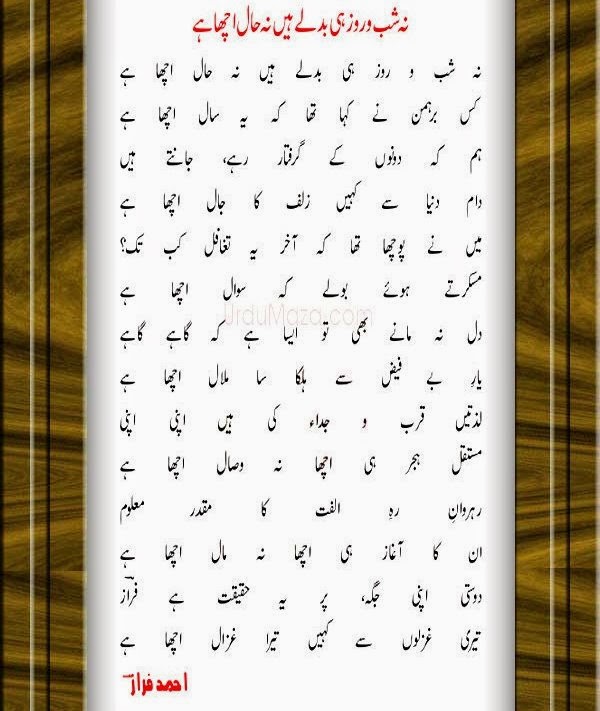 نہ شب و روز ہی بدلے ہیں نہ حال اچھا ہے
نہ شب و روز ہی بدلے ہیں نہ حال اچھا ہے
کس برہمن نے کہا تھا کہ یہ سال اچھا ہے
ہم کہ دونوں کے گرفتار رہے، جانتے ہیں
دام دنیا سے کہیں زلف کا جال اچھا ہے
میں نے پوچھا تھا کہ آخر یہ تغافل کب تک؟
مسکرتے ہوئے بولے کہ سوال اچھا ہے
UrduMaza.com
دل نہ مانے بھی تو ایسا ہے کہ گاہے گاہے
یارِ بے فیض سے ہلکا سا ملال اچھا ہے
لذتیں قرب و جداء کی ہیں اپنی اپنی
مستقل ہجر ہی اچھا نہ وصال اچھا ہے
رہروانِ رہِ الفت کا مقدر معلوم
ان کا آغاز ہی اچھا نہ مال اچھا ہے
دوستی اپنی جگہ، پر یہ حقیقت ہے فرازؔ
تیری غزلوں سے کہیں تیرا غزال اچھا ہے
احمد فرازؔ